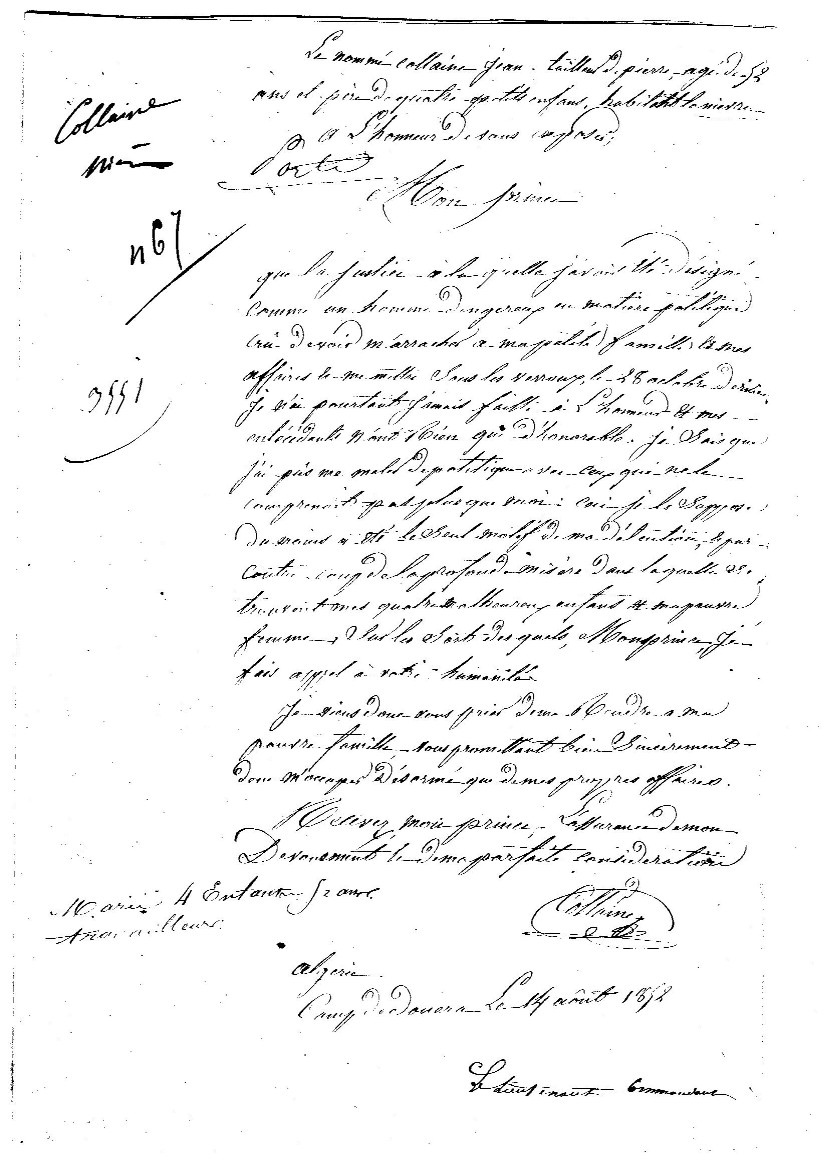 Le nommé Collaine jean tailleur de pierre, agé de 52
ans et père de quatre petits enfans, habitant la nievre
a L'honneur de vous exposer,
Collaine
Mon prince
n 67
3551
que la justice a la quelle j'avais été désigné
comme un homme dangereux en matière politique
crû devoir m'arracher a ma famille et mes
affaires et me mettre sous les verroux, le 28 octobre dernier,
Je n'ai pourtant jamais failli à L'honneur et mes
antécédants n'ont Rien que d'honorable. je Sais que
j'ai pris me meler de politique avec ceux qui ne le
comprenoit pas plus que moi: ceci je le Suppose
du moins a été le Seul motif de ma détention, et par
contre coup de la profonde misère dans la quelle se
trouvent mes quatre malheureux enfans et ma pauvre
femme, Sur les Sort des quels, Mon prince, Je
fais appel à votre humanité
Je viens donc vous prier de me Rendre a ma
pauvre famille vous promettant bien Sincèrement
donc m'occuper Désormé que de mes propres affaires.
Recevez mon prince, L'assurance de mon
Devouement et de ma parfaite considération
Marié 4 Enfants 52 ans
Collaine
algérie
Camp de douera Le 14 août 1852
Le Lieutenant Commandant